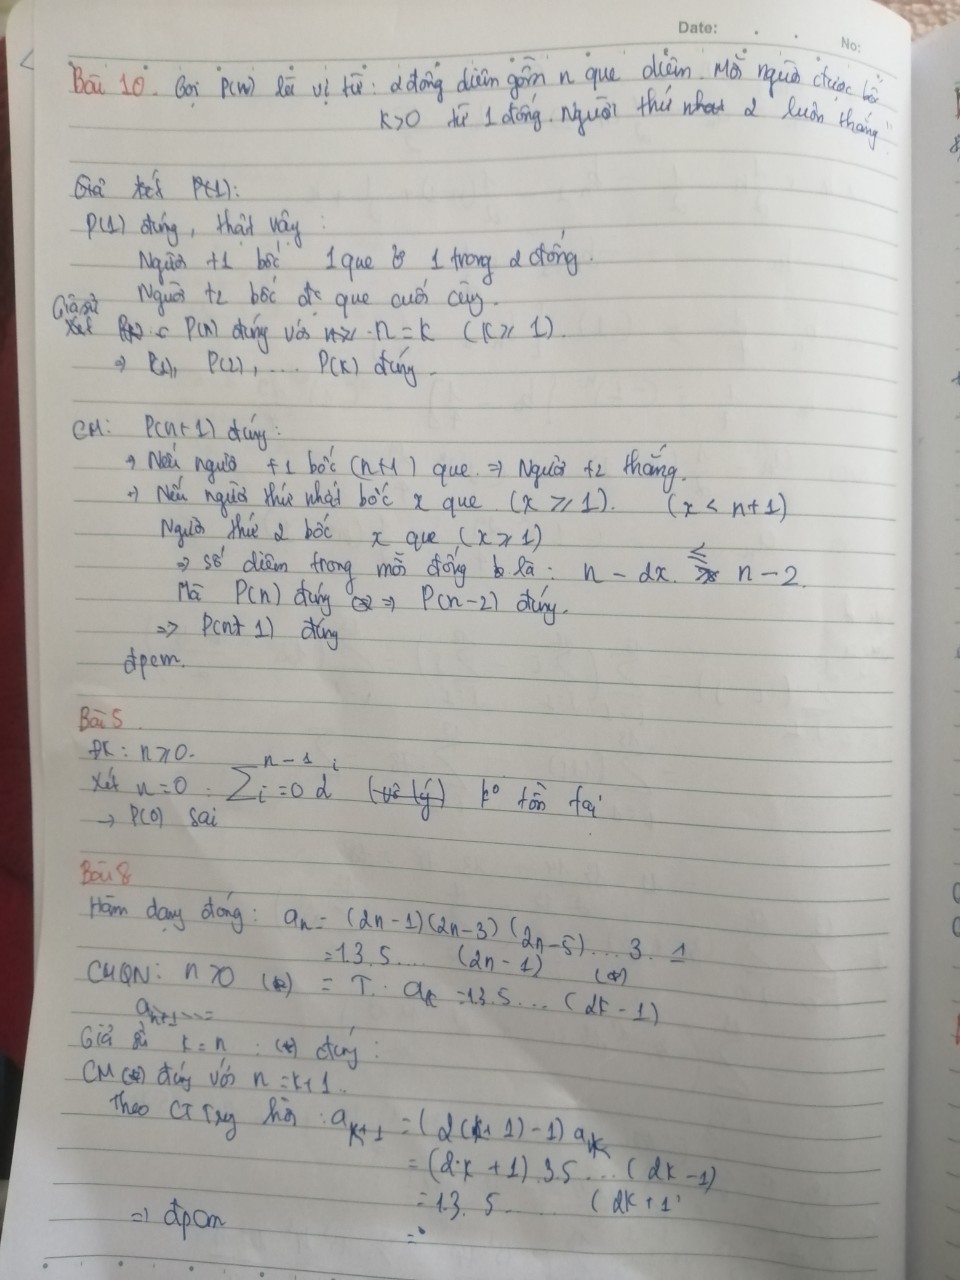 Date: . .
No:
Bài 10. Gọi P(n) là vị từ: 2 đống diêm gồm n que diêm. Mỗi người được bốc
k>0 từ 1 đống. Người thứ 2 luôn thắng"
P(1):
P(1) đúng, thật vậy:
Người t1 bốc 1 que ở 1 trong 2 đống.
Người t2 bốc đc que cuối cùng.
Giả sử
Xét P(n) đúng với n=k (k≥1).
⇒ P(1), P(2), .... P(k) đúng.
CM: P(n+1) đúng:
→ Nếu người t1 bốc (n+1) que ⇒ Người t2 thắng.
→ Nếu người thứ nhất bốc x que (x≥1). (x<n+1)
Người thứ 2 bốc x que (x≥1)
⇒ số diêm trong mỗi đống là: n-2x ≤ n-2.
Mà P(n) đúng ⇒ P(n-2) đúng.
⇒ P(n+1) đúng
đpcm.
Bài 5
ĐK: n≥0.
Xét n=0: ∑ n-1 i i=0 2 (vô lý) k° tồn tại
→ P(0) sai
Bài 8
Hàm dạng đóng: an = (2n-1)(2n-3)(2n-5)...3.1
=1.3.5.... (2n-1) (*)
CMQN: n>0 (*) = T. ak =1.3.5...(2k-1)
an+1...=
Giả sử k=n: (*) đúng:
CM (*) đúng với n=k+1.
Theo CT Truy hồi: ak+1 = (2(k+1)-1) ak
= (2.k+1).3.5....(2k-1)
=1.3.5.... (2k+1
⇒ đpcm
=